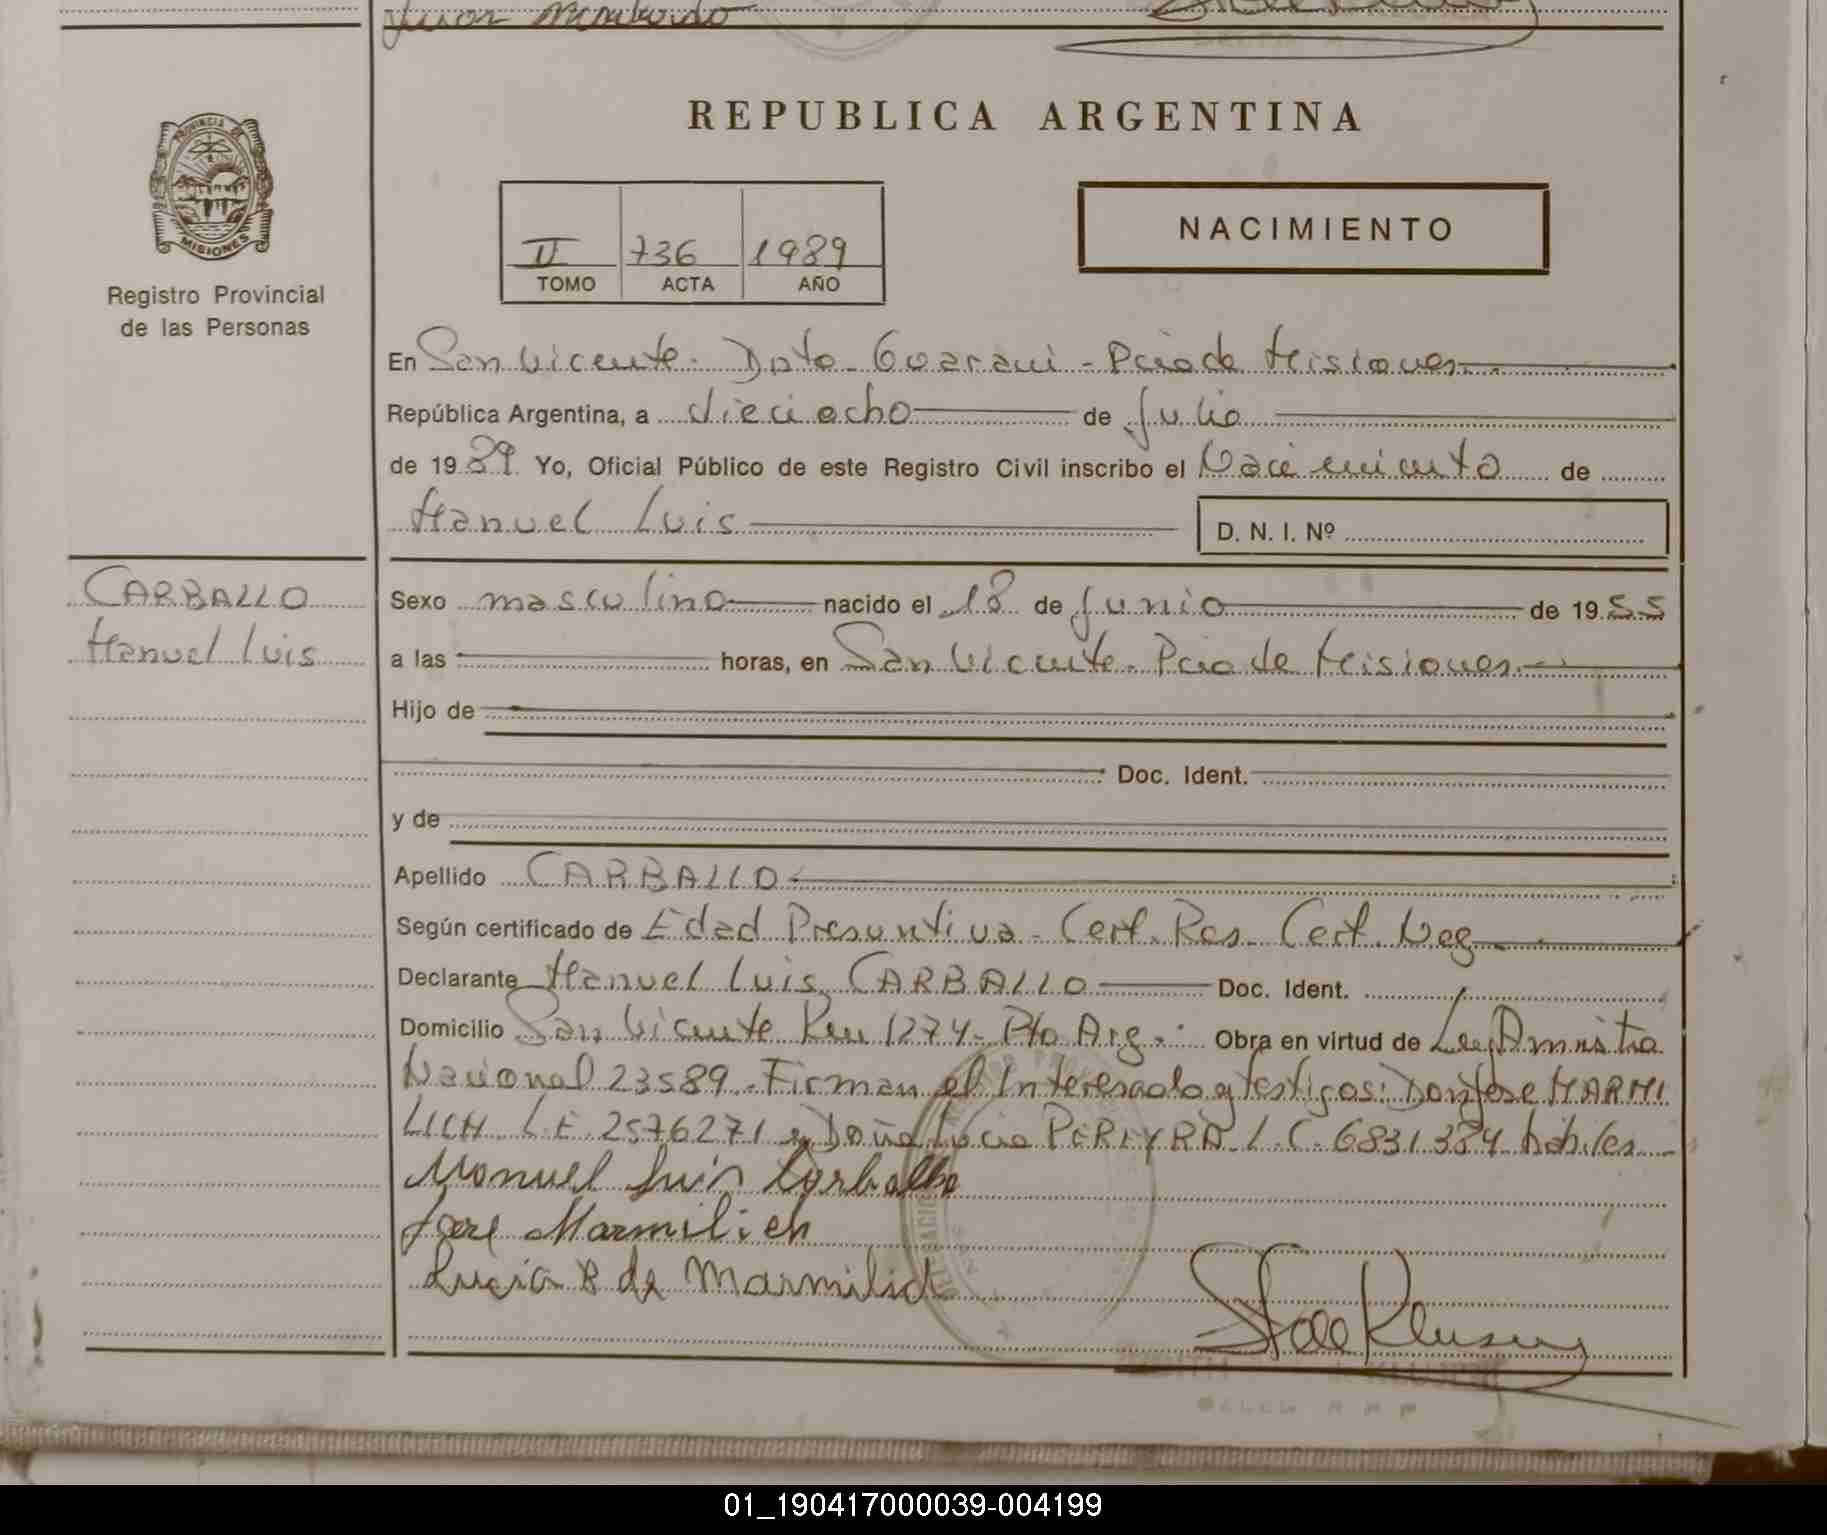 Juan
REPUBLICA ARGENTINA
PROVINCIA DE
MISIONES
Registro Provincial
de las Personas
II 736 1989
TOMO ACTA AÑO
NACIMIENTO
En San Vicente - Dpto - Guarani - Pcia de Misiones
República Argentina, a dieciocho de Julio
de 1989. Yo, Oficial Público de este Registro Civil inscribo el Nacimiento de
Manuel Luis D. N. I. Nº
CARBALLO
Manuel Luis
Sexo masculino nacido el 18 de Junio de 1955
a las horas, en San Vicente - Pcia de Misiones
Hijo de
Doc. Ident.
y de
Apellido CARBALLO
Según certificado de Edad Presuntiva - Cert. Res. Cert. Neg
Declarante Manuel Luis CARBALLO Doc. Ident.
Domicilio San Vicente Km 1274 - Pto Arg. Obra en virtud de Ley Amnistia
Nacional 23589. Firman el Interesado y testigos: Don Jose MARMI
LICH L.E. 2576271 y Doña Lucia PEREYRA L.C. 6831384 hábiles
Manuel Luis Carballo
Jose Marmilich
Lucia P de Marmilich
01_190417000039-004199